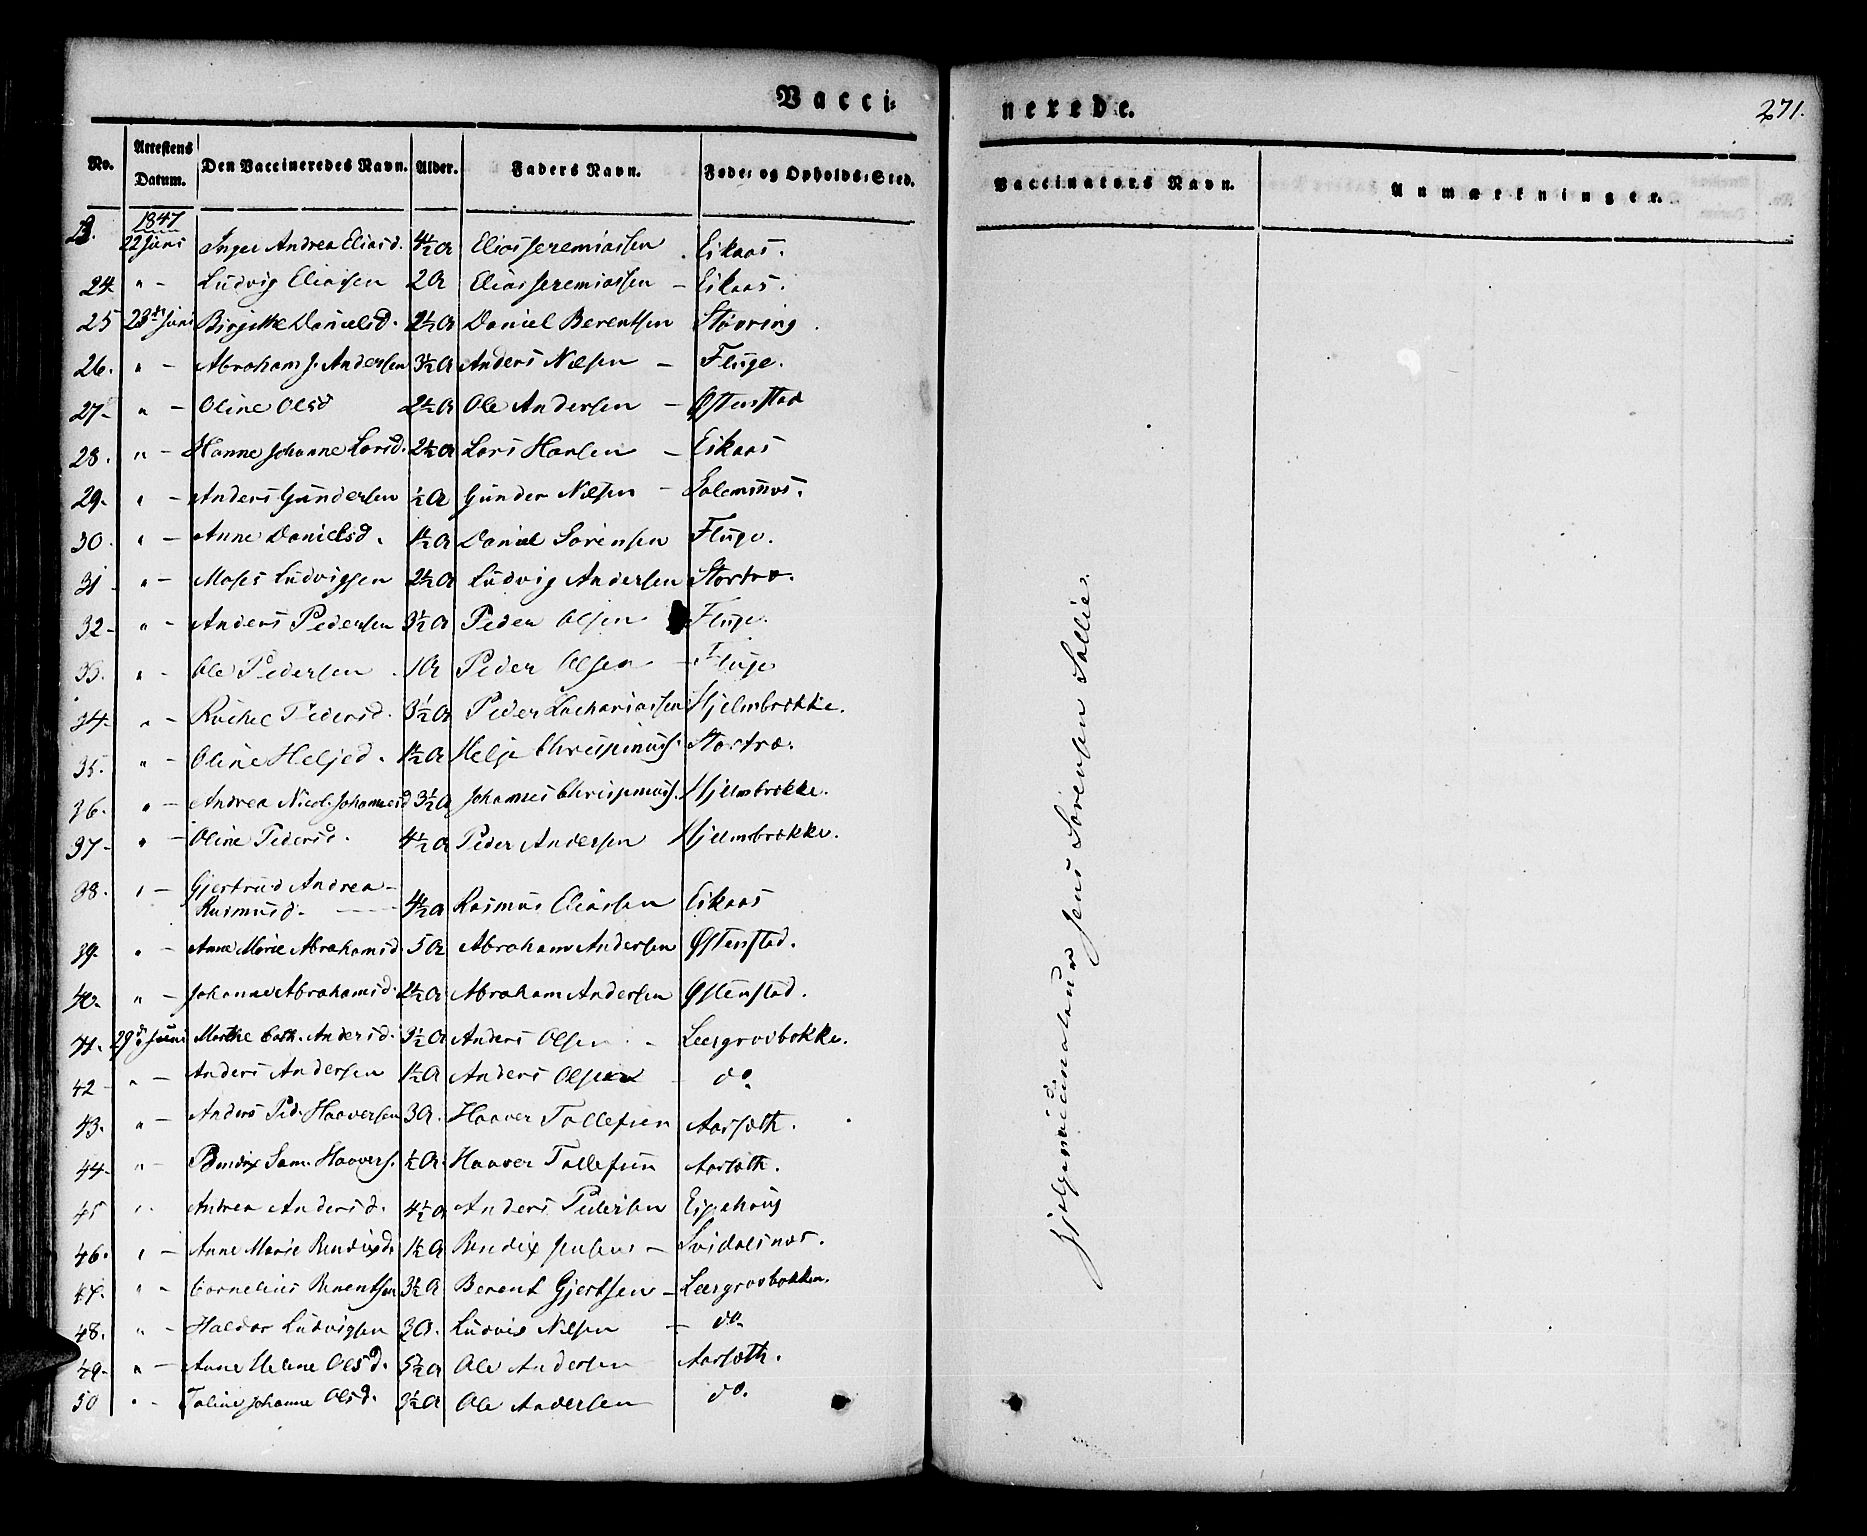 Vacci-
nerede.
271.
No. Attestens Datum. Den Vaccineredes Navn. Alder. Faders Navn. Føde- og Opholds-Sted.
Vaccinators Navn. Anmærkninger.
1847
23. 22 Juni Inger Andrea Eliasd. 4½ A Elias Jeremiassen Eikaas.
24 " - Ludvig Eliassen 2 A Elias Jeremiassen - Eikaas.
25 23de Juni Birgitte Danielsd. 2½ A Daniel Berentsen Støvring.
26. " - Abraham J. Andersen 3½ A Anders Nilsen - Fluge.
27- " - Oline Olsd 2½ A Ole Andersen - Østenstad
28. " - Hanne Johanne Larsd. 2½ A Lars Hansen - Eikaas
29. " - Anders Gundersen ½ A Gunder Nilsen -
30. " - Anne Danielsd. 1½ A Daniel Sørensen Fluge.
31 " - Moses Ludvigsen 2½ A Ludvig Andersen Stostræ.
32- " - Anders Pedersen 3½ A Peder Olsen Fluge.
33. " - Ole Pedersen. 1 A Peder Olsen - Fluge
34- " - Rachel Pedersd. 3½ A Peder Zachariassen Hjelmbrække.
35. " - Oline Heljed. 1½ A Helje Chrispinuss. Stostræ.
36. " - Andrea Nicol. Johannesd 3½ A Johannes Chrispinuss. Hjelmbrække.
37- " - Oline Pedersd. 4½ A Peder Andersen Hjelmbrække.
38. " - Gjertrud Andrea-
Rasmusd. - 4½ A Rasmus Eliassen Eikaas
39. " - Anne Marie Abrahamsd. 5 A Abraham Andersen Østenstad.
40. " - Johanne Abrahamsd. 2½ A Abraham Andersen Østenstad.
41. 29de Juni Marthe Cath. Andersd. 3½ A Anders Olsen - Leesgrovbække.
42- " - Anders Andersen 1½ A Anders Olsen - do.
43. " - Anders Ped. Haaversen 3 A. Haaver Tollefsen Aarsæth.
44- " - Bendix Sam. Haavers. ½ A. Haaver Tollefsen Aarsæth.
45 " - Andrea Andersd. 4½ A Anders Pedersen Eipehoug
46. " - Anne Marie Bendixd. 1½ A Bendix Jensen - Svidalsnæs.
47. " - Cornelius Berentsen 3½ A Berent Gjertsen - Leesgrovbækken.
48. " - Haldor Ludvigsen 3 A. Ludvig Nilsen - do.
49- " - Anne Helene Olsd. 5½ A Ole Andersen Aarsæth.
50 " - Taline Johanne Olsd. 3½ A Ole Andersen do.
Hjelpevaccinateur Jens Sørensen Sollie.